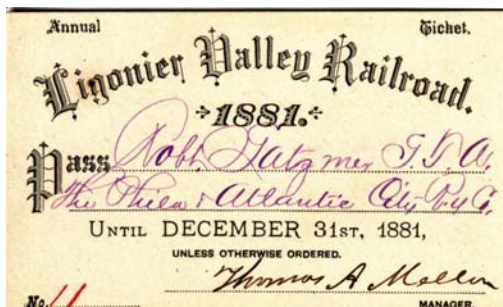 Annual Ticket.
Ligonier Valley Railroad.
1881.
Pass Robt. Fatzmer G.T.A.
the Phila & Atlantic City Ry Co.
UNTIL DECEMBER 31ST, 1881,
UNLESS OTHERWISE ORDERED.
Thomas A Mellon
No. 11 MANAGER.